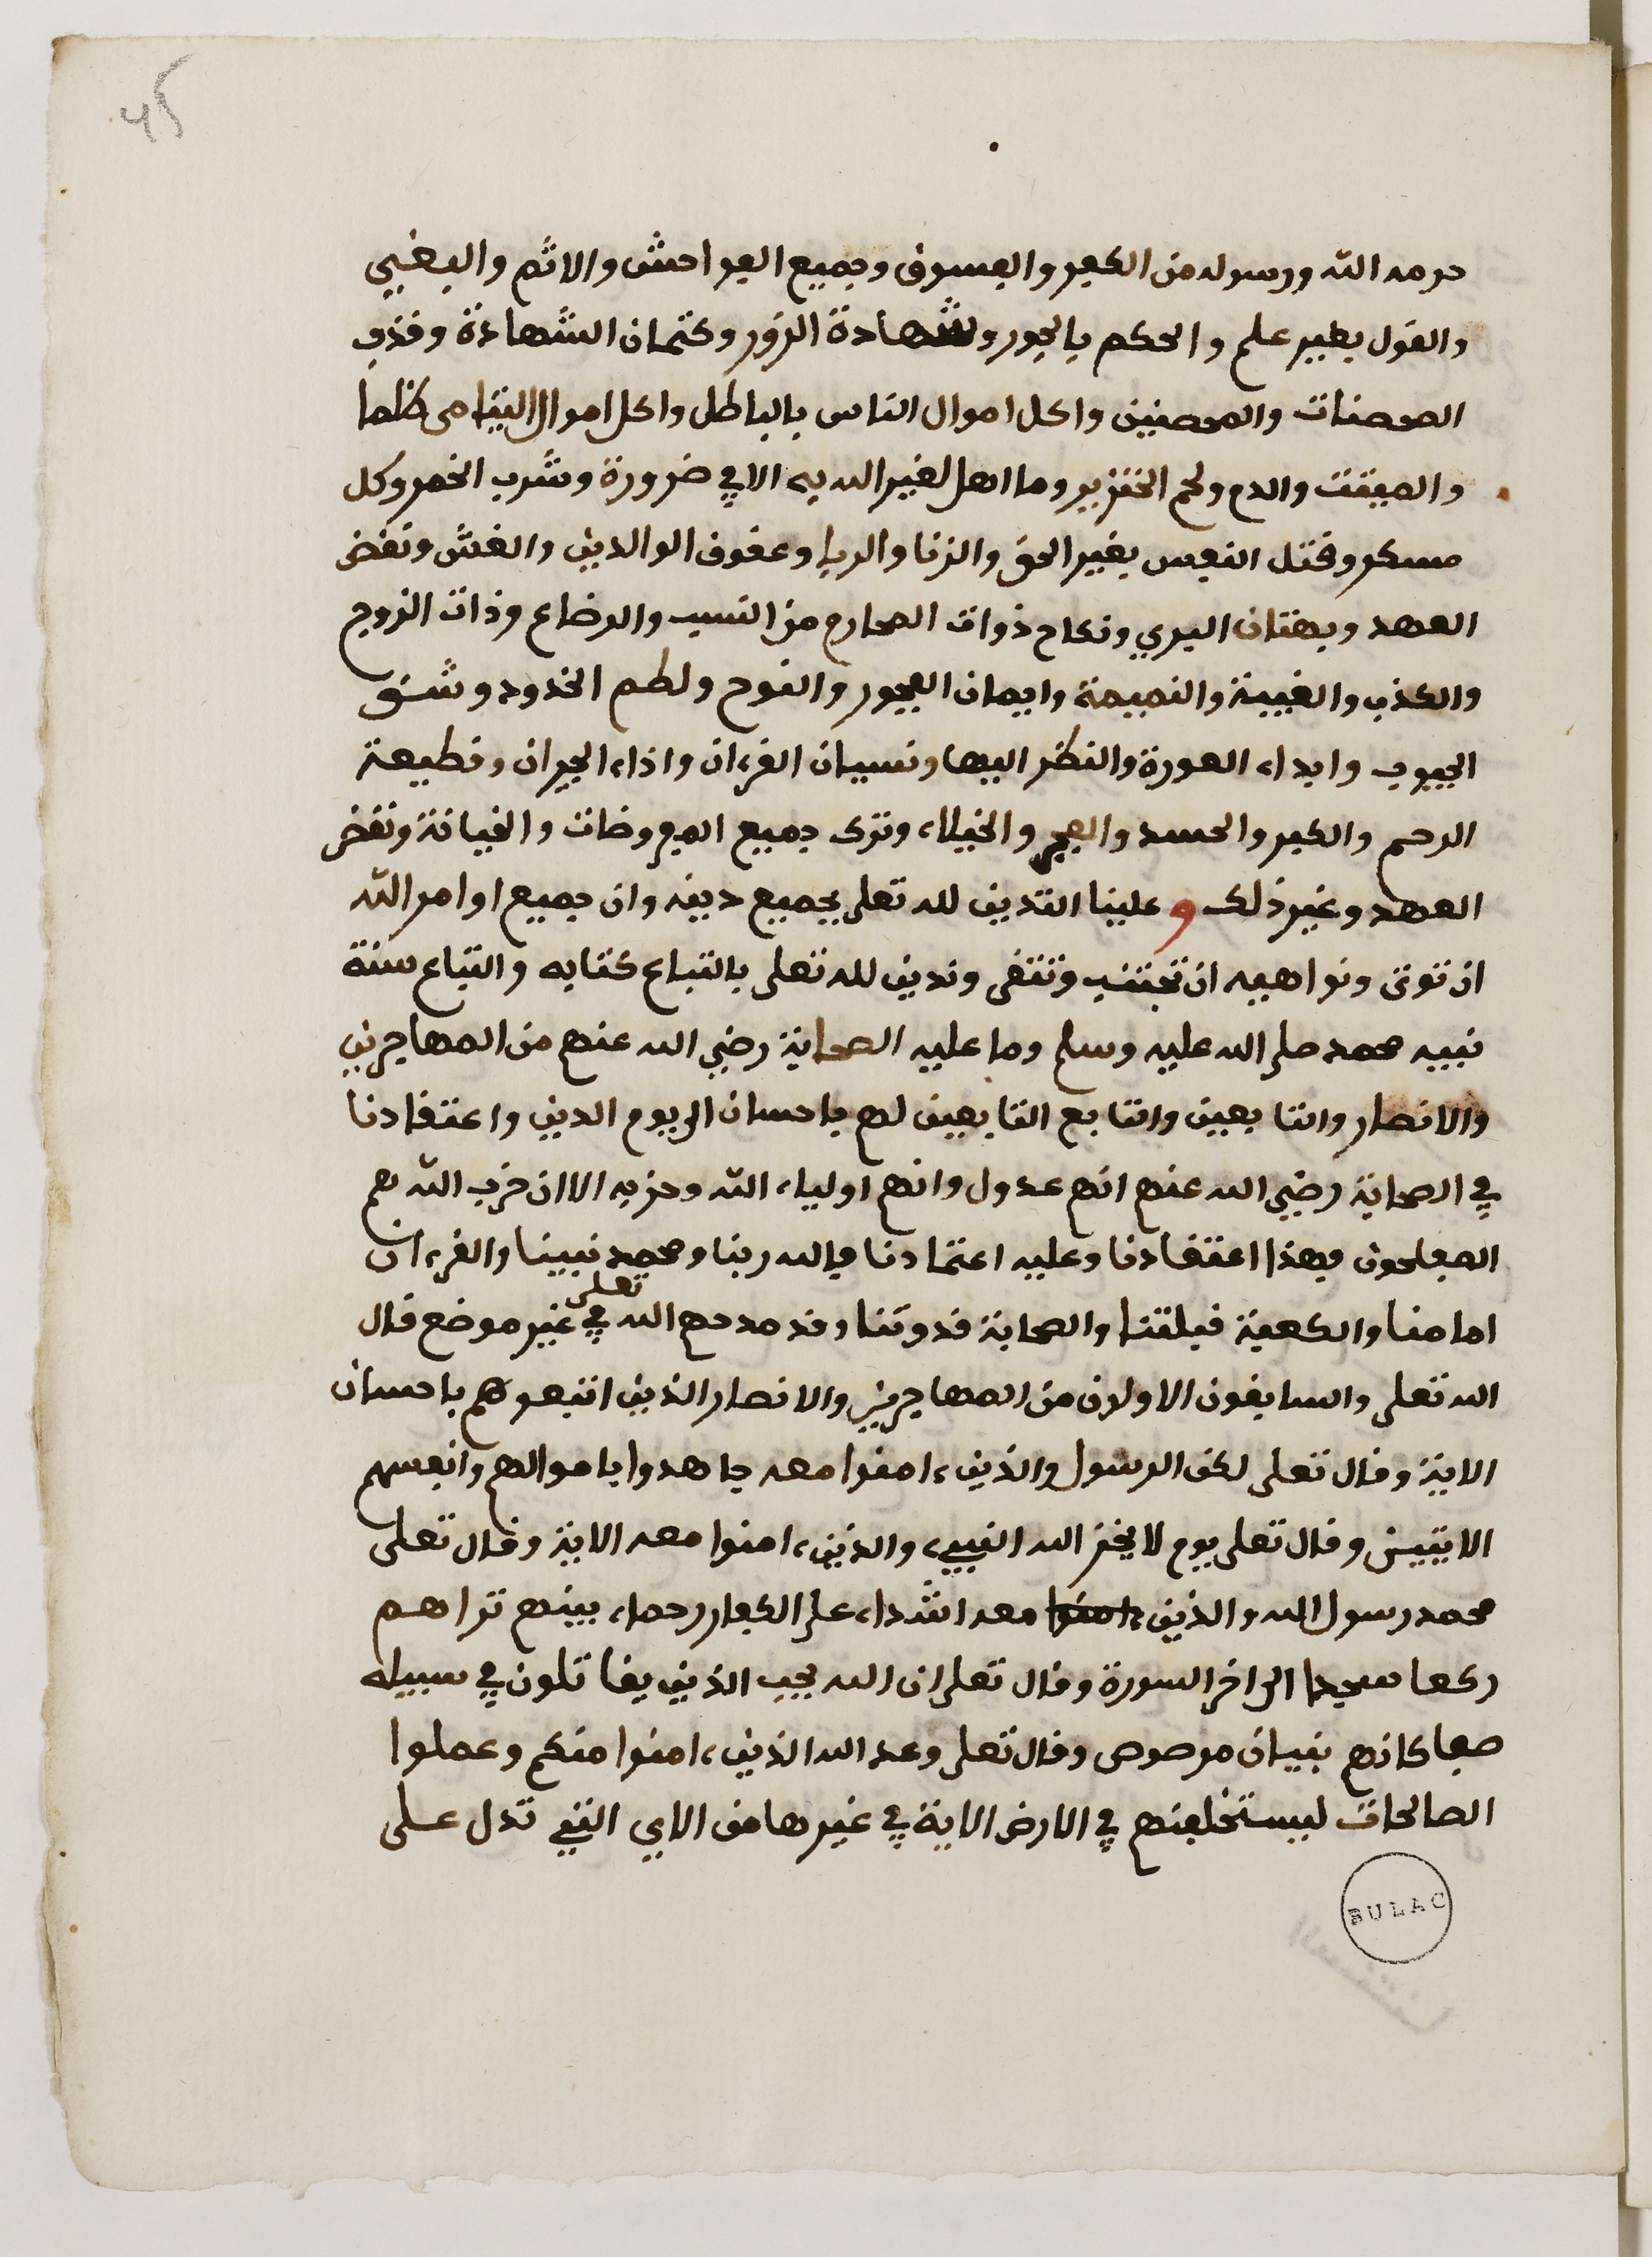 45
حرمه الله ورسوله من الكفر والفسوق وجميع الفواحش والاثم والبغي
والقول بغير علم والحكم بالجور وشهادة الزور وكتمان الشهادة وقذف
المحصنات والمحصنين واكل اموال الناس بالباطل واكل اموال اليتامى ظلما
والميتت والدم ولحم الخنزير وما اهل لغير الله به الا في ضرورة وشرب الخمر وكل
مسكر وقتل النفس بغير الحق والزنا والربا وعقوق الوالدين والغش ونقض
العهد وبهتان البري ونكاح ذوات المحارم من النسب والرضاع وذات الزوج
والكذب والغيبة والنميمة وايمان الفجور والنوح ولطم الخدود وشق
الجيوب وابداء العورة والنظر اليها ونسيان القرءان واذاء الجيران وقطيعة
الرحم والكبر والحسد والعجب والخيلاء وترك جميع المفروضات والخيانة ونقض
العهد وغير ذلك و علينا التدين لله تعلى بجميع دينه وان جميع اوامر الله
ان توتى ونواهيه ان تجتنب وتتقى وندين لله تعلى باتباع كتابه واتباع سنة
نبيه محمد صلى الله عليه وسلم وما عليه الصحابة رضي الله عنهم من المهاجرين
والانصار والتابعين وتابع التابعين لهم باحسان الى يوم الدين واعتقادنا
في الصحابة رضي الله عنهم انهم عدول وانهم اولياء الله وحزبه الا ان حزب الله هم
المفلحون فهذا اعتقادنا وعليه اعتمادنا فالله ربنا ومحمد نبينا والقرءان
امامنا والكعبة قبلتنا والصحابة قدوتنا وقد مدحهم الله تعلى في غير موضع قال
الله تعلى والسابقون الاولون من المهاجرين والانصار الذين اتبعوهم باحسان
الاية وقال تعلى لكن الرسول والذين ءامنوا معه جاهدوا باموالهم وانفسهم
الايتين وقال تعلى يوم لا يخز الله النبيء والذين ءامنوا معه الاية وقال تعلى
محمد رسول الله والذين ءامنوا معه اشداء على الكفار رحماء بينهم تراهم
ركعا سجدا الى اخر السورة وقال تعلى ان الله يحب الذين يقاتلون في سبيله
صفا كانهم بنيان مرصوص وقال تعلى وعد الله الذين ءامنوا منكم وعملوا
الصالحات ليستخلفنهم في الارض الاية في غيرها من الاي التي تدل على
BULAC